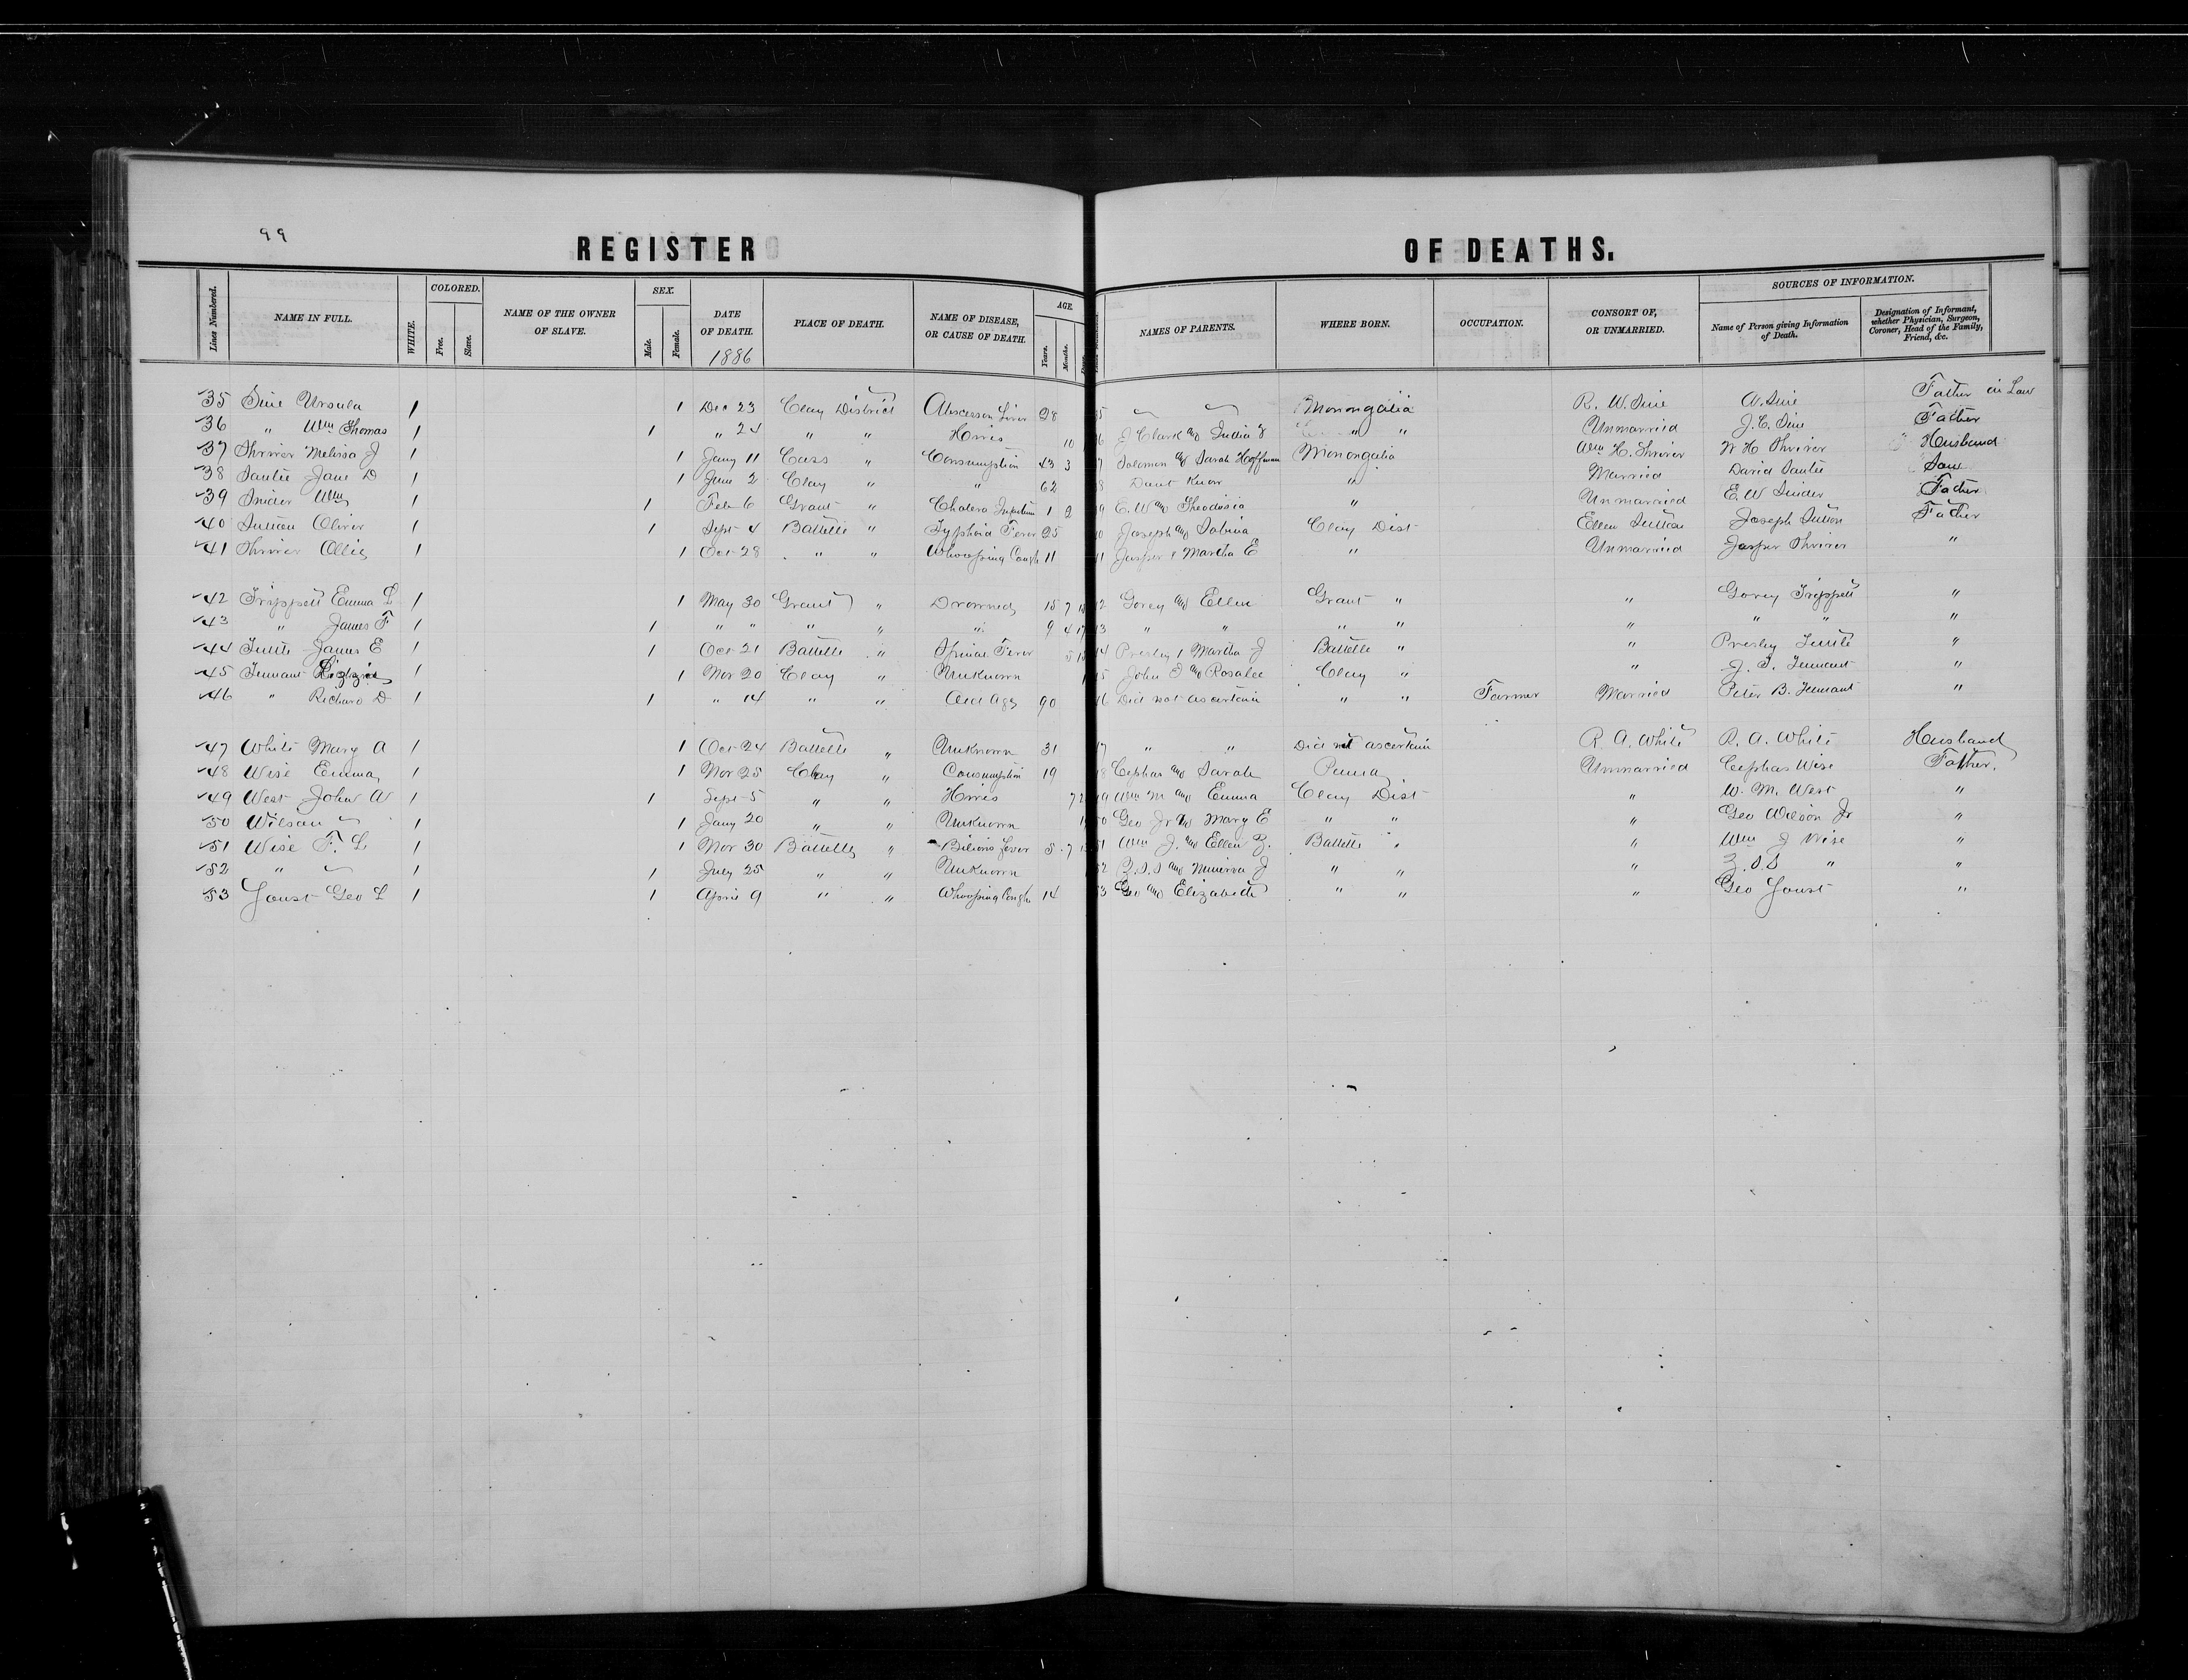 99
REGISTER OF DEATHS.
Lines Numbered. NAME IN FULL. WHITE. COLORED. Free. Slave. NAME OF THE OWNER OF SLAVE. SEX. Male. Female. DATE OF DEATH. 1886 PLACE OF DEATH. NAME OF DISEASE, OR CAUSE OF DEATH. AGE. Years. Months. NAMES OF PARENTS. WHERE BORN. OCCUPATION. CONSORT OF, OR UNMARRIED. SOURCES OF INFORMATION. Name of Person giving Information of Death. Designation of Informant, whether Physician, Surgeon, Coroner, Head of the Family, Friend, &c.
35 Sine Ursula 1 1 Dec 23 Clay District Liver 28 Monongalia R. W. Sine A. Sine Father in Law
36 " Wm Thomas 1 1 " 24 " " Hives 10 J Clark and " " Unmarried J. C. Sine Father
37 Shriver Melissa J 1 1 Jany 11 Cass " Consumption 43 3 Solomon and Sarah Hoffman Monongalia Wm H. Shriver W H Shriver Husband
38 Jane D 1 1 June 2 Clay " " 62 Dont Know " Married David Same
39 Snider Wm 1 1 Feb 6 Grant " Cholera 1 2 E. W and Theodosia " Unmarried E. W Snider Father
40 Sutton Oliver 1 1 Sept 4 Battelle " Typhoid Fever 25 Joseph and Sabina Clay Dist Ellen Sutton Joseph Sutton Father
41 Shriver Ollie 1 1 Oct 28 " " Whooping Cough 11 Jasper & Martha E " Unmarried Jasper Shriver "
42 Trippett Emma L 1 1 May 30 Grant " Drowned 15 7 Gorey and Ellen Grant " " Gorey Trippett "
43 " James F 1 1 " " " " " 9 4 17 " " " " " " " "
44 James E 1 1 Oct 21 Battelle " Spinal Fever 5 Presley & Martha J Battelle " " Presley "
45 Tennant 1 1 Nov 20 Clay " Unknown John and Rosalee Clay " " J. Tennant "
46 " Richard D 1 1 " 14 " " Old Age 90 Did not ascertain " " Farmer Married Peter B. Tennant "
47 White Mary A 1 1 Oct 24 Battelle " Unknown 31 " " Did not ascertain R. A. White R. A. White Husband
48 Wise Emma 1 1 Nov 25 Clay " Consumption 19 Cephas and Sarah Penna Unmarried Cephas Wise Father.
49 West John W 1 1 Sept 5 " " Hives 7 Wm M and Emma Clay Dist " W. M. West "
50 Wilson 1 1 Jany 20 " " Unknown Geo Jr and Mary E " " " Geo Wilson Jr "
51 Wise F. L 1 1 Nov 30 Battelle " Bilious fever 5 7 Wm J. and Ellen Z. Battelle " " Wm J Wise "
52 " 1 1 July 25 " " Unknown and Minerva J " " " " "
53 Youst Geo L 1 1 April 9 " " Whooping Cough 14 Geo and Elizabeth " " " Geo Youst "